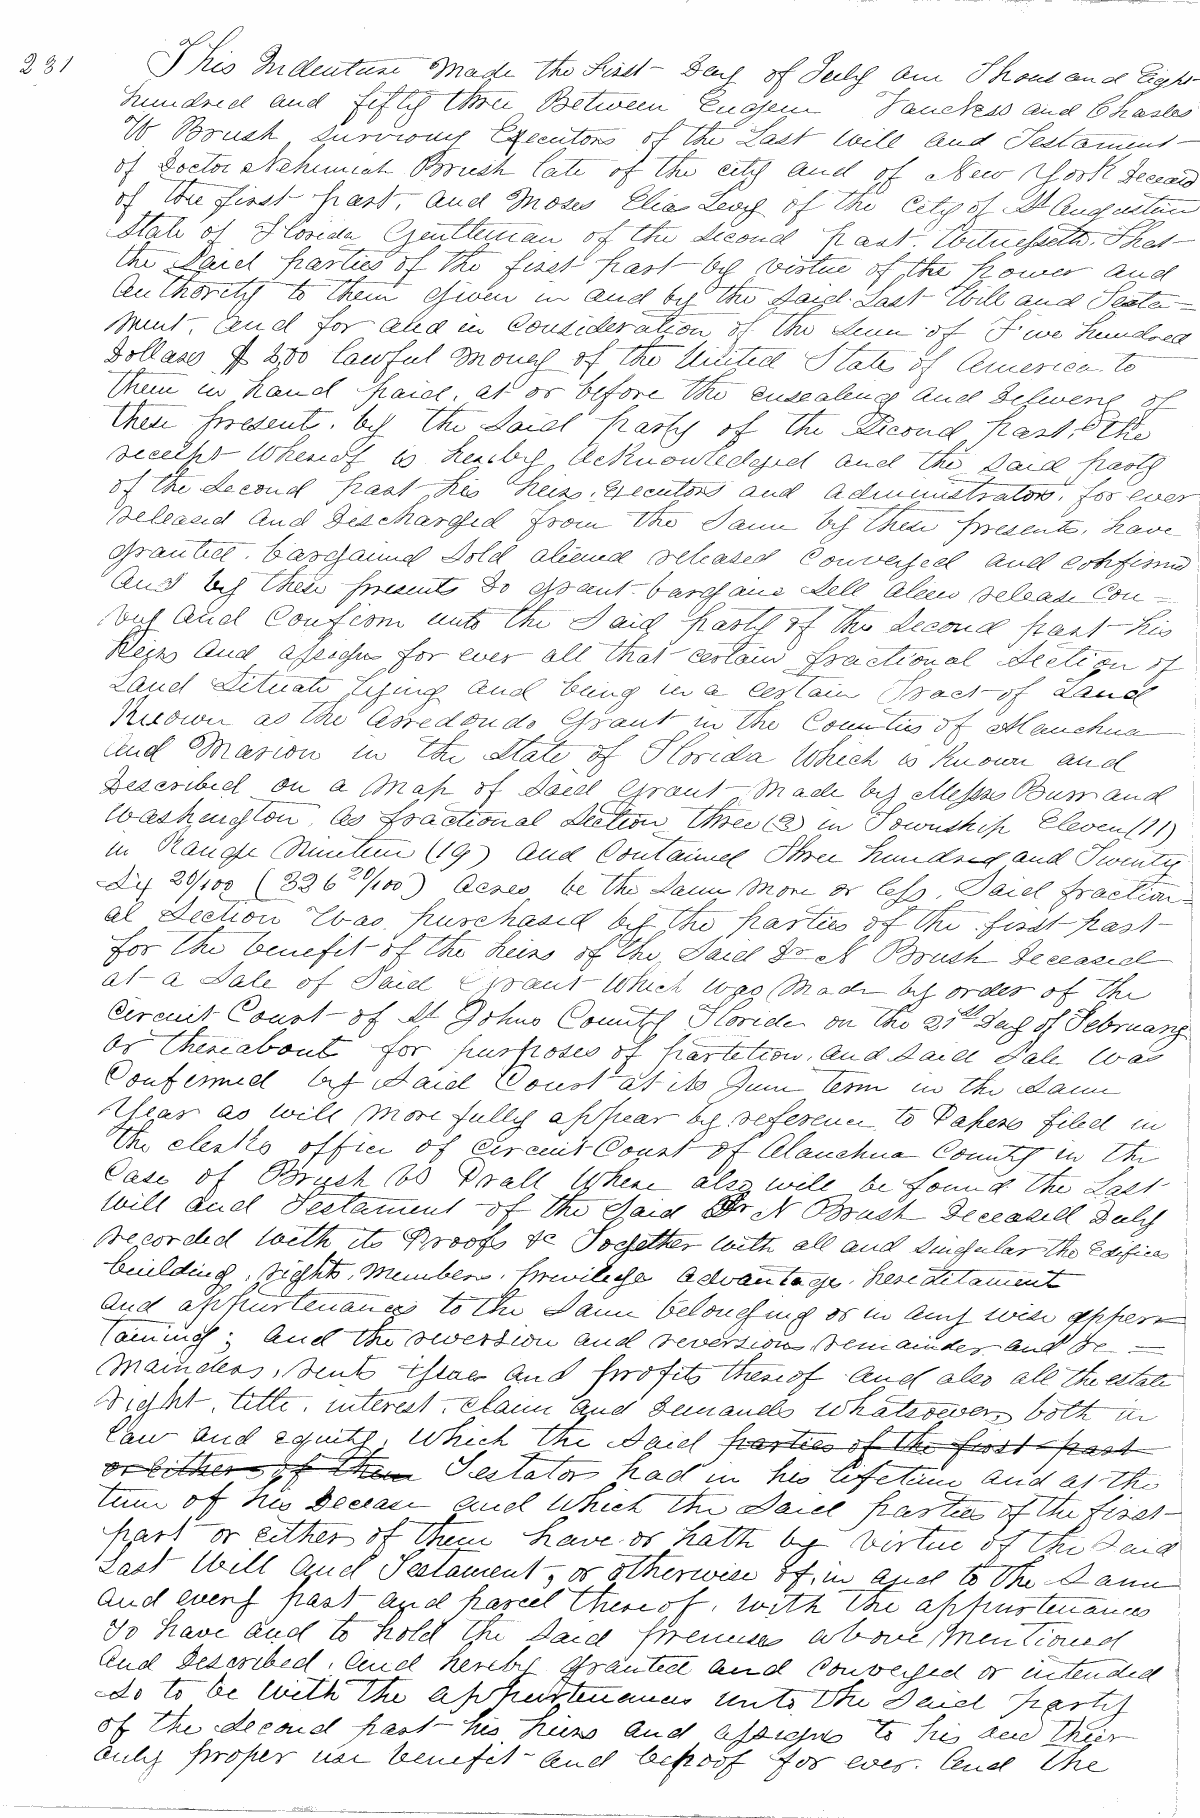 231
This Indenture Made the First Day of July one Thousand Eight
hundred and fifty three Between Eugene and Charles
W Brush surviving Executors of the Last Will and Testament
of Doctor Nehemiah Brush late of the city and of New York Deceased
of the first part, and Moses Elias Levy of the City of St Augustine
State of Florida Gentleman of the Second part. Witnesseth. That
the Said parties of the first part by virtue of the power and
Authority to them given in and by the Said Last Will and Testa=
ment. and for and in Consideration of the Sum of Five hundred
Dollars $ 500 lawful Money of the United States of America to
them in hand paid, at or before the ensealing and Delivery of
these presents. by the Said party of the Second part, the
receipt Whereof is hereby Acknowledged and the said party
of the Second part his heirs. Executors and administrators. for ever
released and Discharged from the Same by these presents, have
granted. bargained Sold aliened released Conveyed and confirmed
And by these presents Do grant bargain Sell alien release Con=
vey and Confirm unto the Said party of the Second part his
Heirs and assigns for ever all that certain fractional Section of
Land Situate lying and being in a certain Tract of Land
Known as the Arredondo Grant in the Counties of Alauchua
and Marion in the State of Florida Which is known and
Described on a Map of Said Grant Made by Messrs Burr and
Washington, as fractional Section three (3) in Township Eleven (11)
in Range Nineteen (19) and Contained Three hundred and Twenty
Six 20/100 (326 20/100) Acres be the Same More or less. Said fraction=
al Section Was purchased by the parties of the first part
for the benefit of the heirs of the Said Dr N Brush Deceased
at a Sale of Said Grant Which was Made by order of the
Circuit Court of St Johns County Florida on the 21st Day of February
or thereabout for purposes of partetion. and Said Sale Was
Confirmed by Said Court at its June term in the Same
Year as will More fully appear by reference to Papers filed in
the clerks office of Circuit Court of Alauchua County in the
Case of Brush vs Drall Where also will be found the Last
Will and Testament of the Said Dr N Brush Deceased Duly
recorded with its Proofs &c Together with all and Singular the Edifices
building, rights. Members. privilege advantage. hereditament
and appurtenances to the Same belonging or in any wise apper
taining; and the reversion and reversions remainder and re=
mainders, rents issues and profits thereof and also all the estate
right, title. interest. claim and Demands whatsoever, both in
law and equity. Which the Said parties of the first part
or either of them Testators had in his lifetime and at the
time of his Decease and Which the Said parties of the first
part or either of them have or hath by virtue of the Said
Last Will and Testament, or otherwise of, in and to the Same
and every part and parcel thereof. with the appurtenances
To have and to hold the Said premises above Mentioned
and Described. and hereby granted and conveyed or intended
So to be With the appurtenances unto the Said party
of the Second part his heirs and assigns to his and their
only proper use benefit and behoof for ever. And the